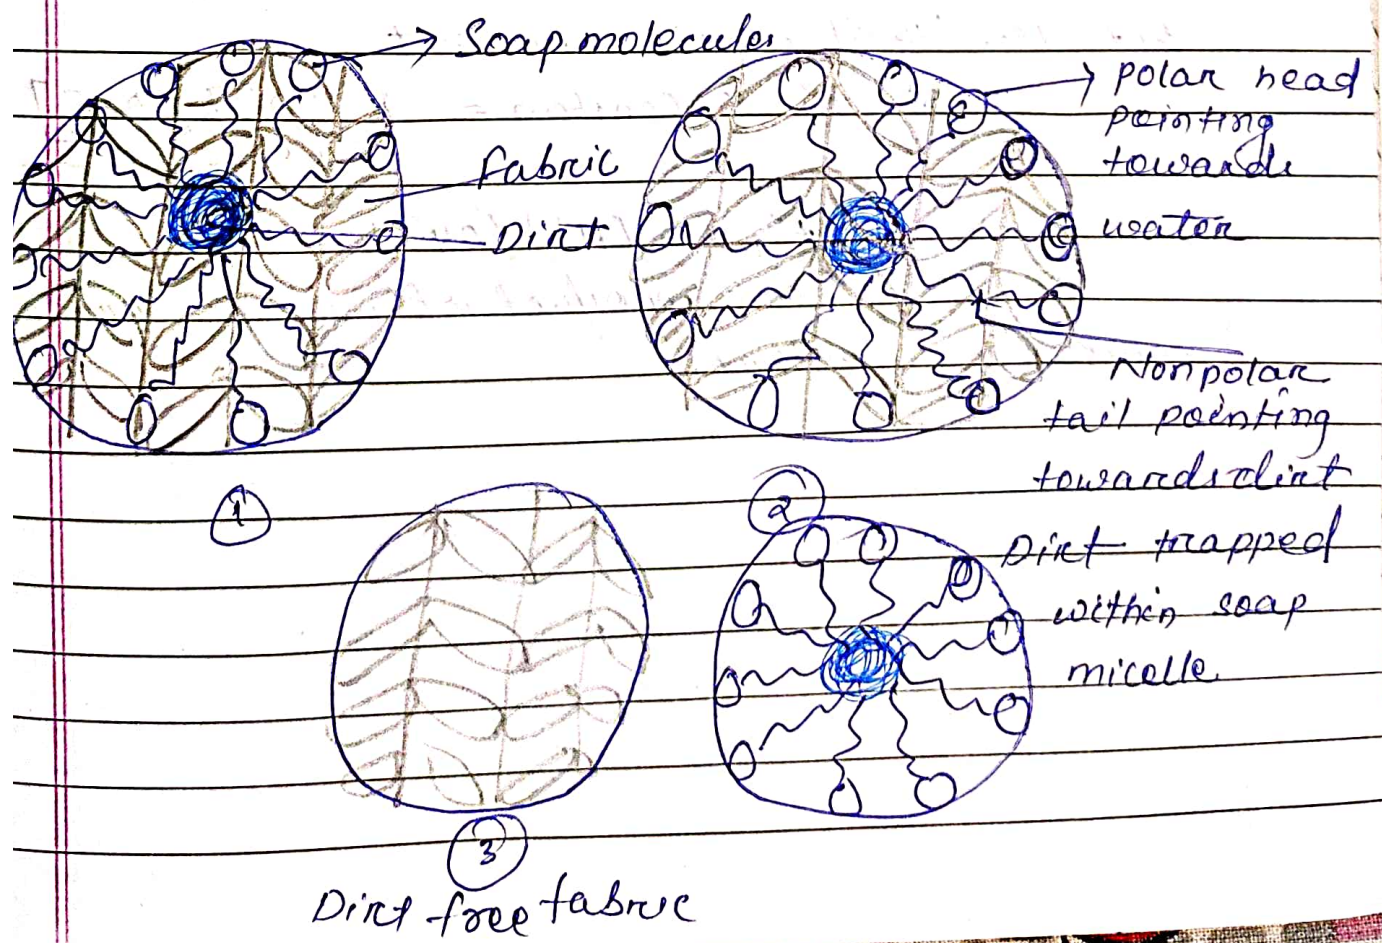 Soap molecules
fabric
Dirt
polar head
pointing
towards
water
Nonpolar
tail pointing
towards dirt
1
2
Dirt trapped
within soap
micelle
3
Dirt free fabric